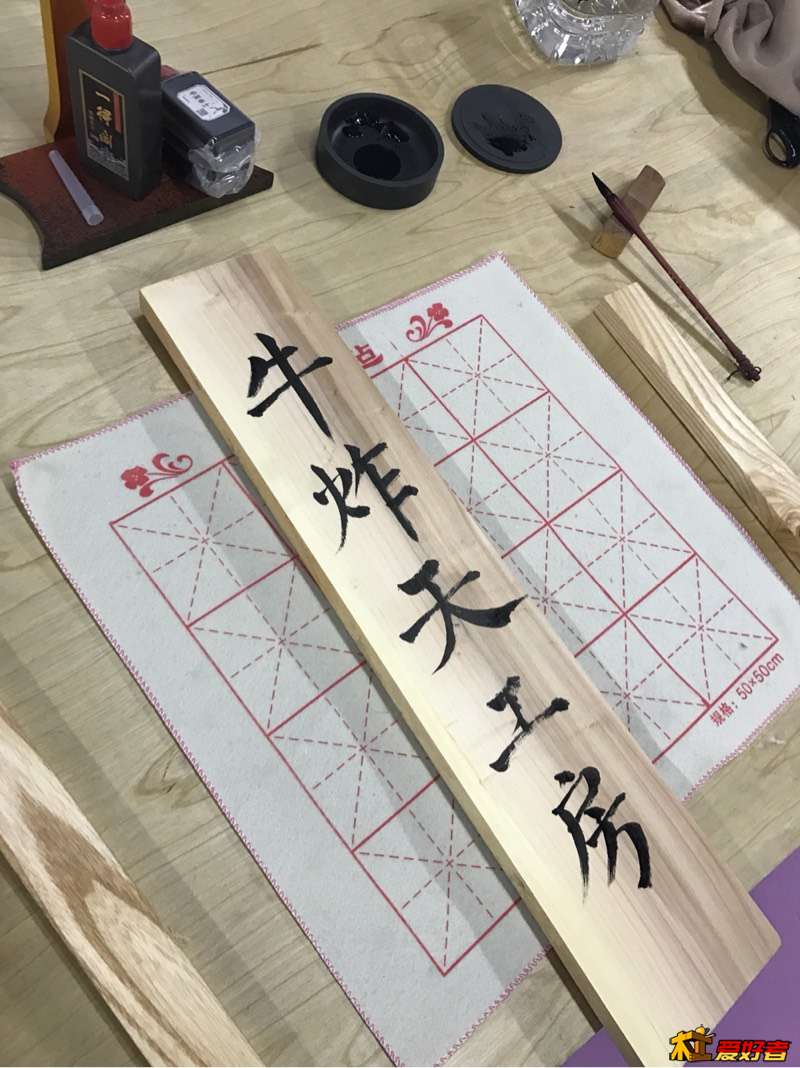 一得阁
点
牛炸天工房
规格：50×50cm
木工爱好者